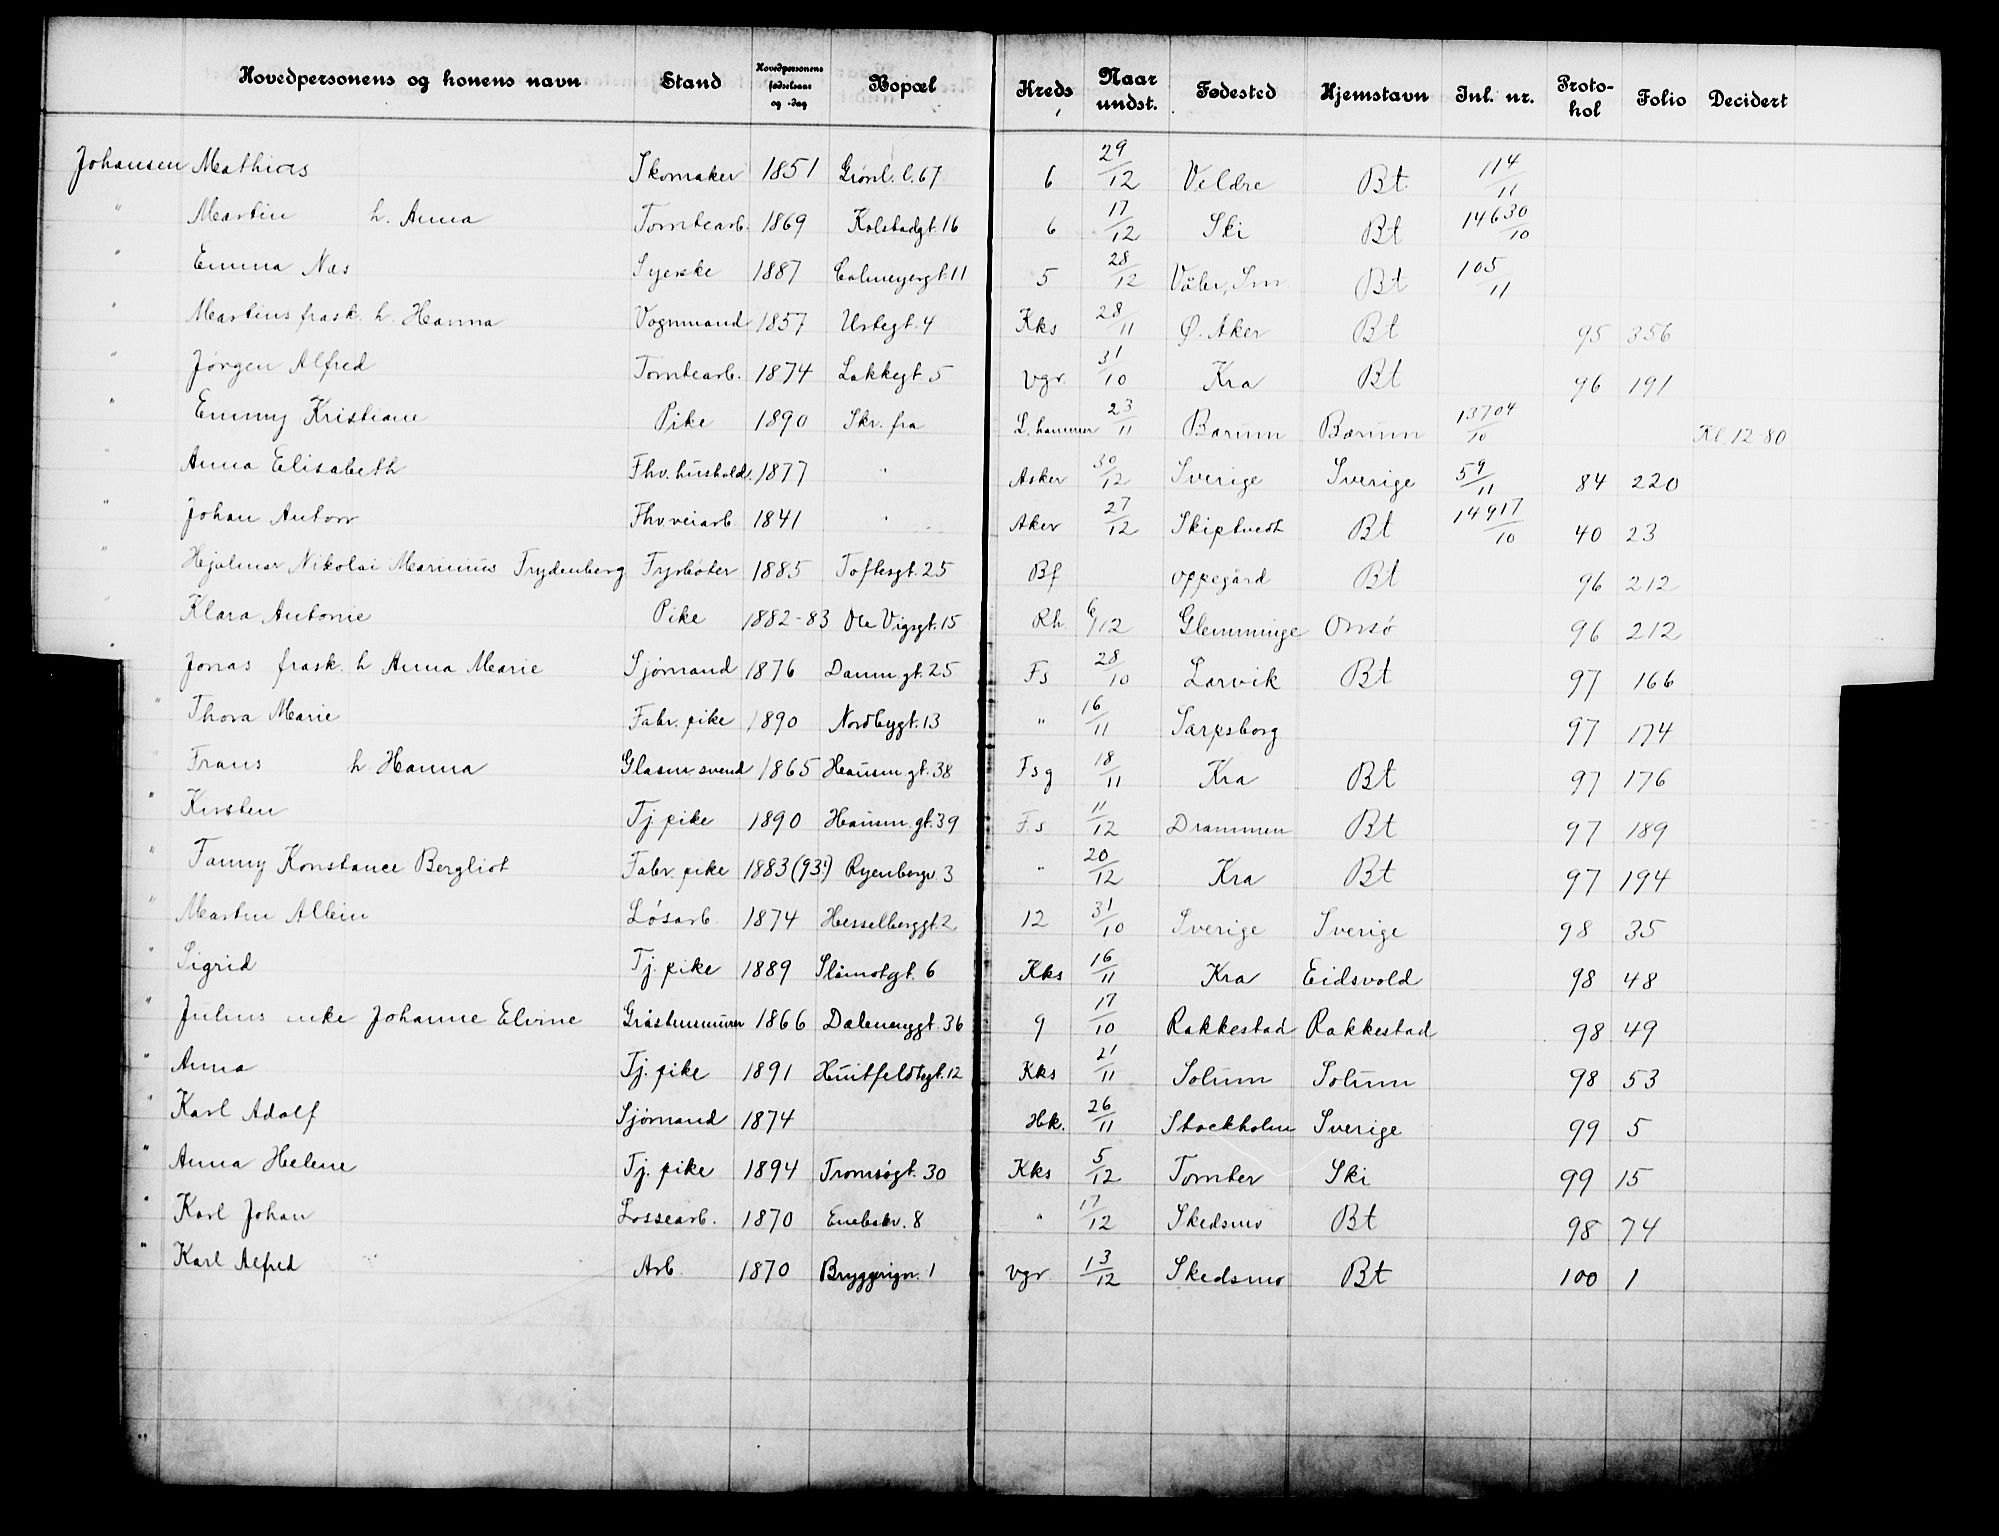 Hovedpersonens og konens navn Stand Hovedpersonens fødselsaar og -dag Bopæl Kreds Naar undst. Fødested Hjemstavn Inl. nr. Protokol Folio Decidert
Johansen Mathias Skomaker 1851 Grønl. l. 67 6 29/12 Veldre Bt 114/11
" Martin h. Anna Tomtearb. 1869 Kolstadgt. 16 6 17/12 Ski Bt 14630/10
" Emma Næs Syerske 1887 Calmeyersgt. 11 5 28/12 Våler, Sm. Bt 105/11
" Martinus frask. h. Hanna Vognmand 1857 Urtegt. 4 Kks 28/11 Ø. Aker Bt 95 356
" Jørgen Alfred Tomtearb. 1874 Lakkegt. 5 Vgr. 31/10 Kra Bt 96 191
" Emmy Kristiane Pike 1890 Skr. fra L. hammer 23/11 Bærum Bærum 13704/10 Kl. 12-80
" Anna Elisabeth Fhv. hushold. 1877 " Asker 30/12 Sverige Sverige 59/11 84 220
" Johan Anton Fhv veiarb 1841 " Aker 27/12 Skiptvedt Bt 14917/10 40 23
" Hjalmar Nikolai Marinius Frydenberg Fyrbøter 1885 Toftesgt. 25 Bf Oppegård Bt 96 212
Klara Antonie Pike 1882-83 Ole Vigsgt. 15 Rh. 6/12 Glemminge Onsø 96 212
" Jonas frask. h Anna Marie Sjømand 1876 Danm. gt. 25 Fs 28/10 Larvik Bt 97 166
" Thora Marie Fabr. pike 1890 Nordbygt. 13 " 16/11 Sarpsborg 97 174
" Frans h. Hanna Glasm. svend 1865 Hausm. gt. 38 Fsg 18/11 Kra Bt 97 176
" Kirsten Tj. pike 1890 Hausm. gt. 39 F.s 11/12 Drammen Bt 97 189
" Fanny Konstance Bergliot Fabr. pike 1883 (93?) Ryenbergv. 3 " 20/12 Kra Bt 97 194
" Martin Albin Løsarb. 1874 Hesselberggt. 2 12 31/10 Sverige Sverige 98 35
" Sigrid Tj. pike 1889 Slåmotgt. 6 Kks 16/11 Kra Eidsvold 98 48
" Julius enke Johanne Elvine Gråstensmurer 1866 Dælenenggt. 36 9 17/10 Rakkestad Rakkestad 98 49
" Anna Tj. pike 1891 Huitfeldtsgt. 12 Kks 21/11 Solum Solum 98 53
" Karl Adolf Sjømand 1874 Hk. 26/11 Stockholm Sverige 99 5
" Anna Helene Tj. pike 1894 Tromsøgt. 30 Kks 5/12 Tomter Ski 99 15
" Karl Johan Lossearb. 1870 Enebakv. 8 " 17/12 Skedsmo Bt 98 74
" Karl Alfred Arb. 1870 Bryggerigv. 1 Vgr. 13/12 Skedsmo Bt 100 1
"